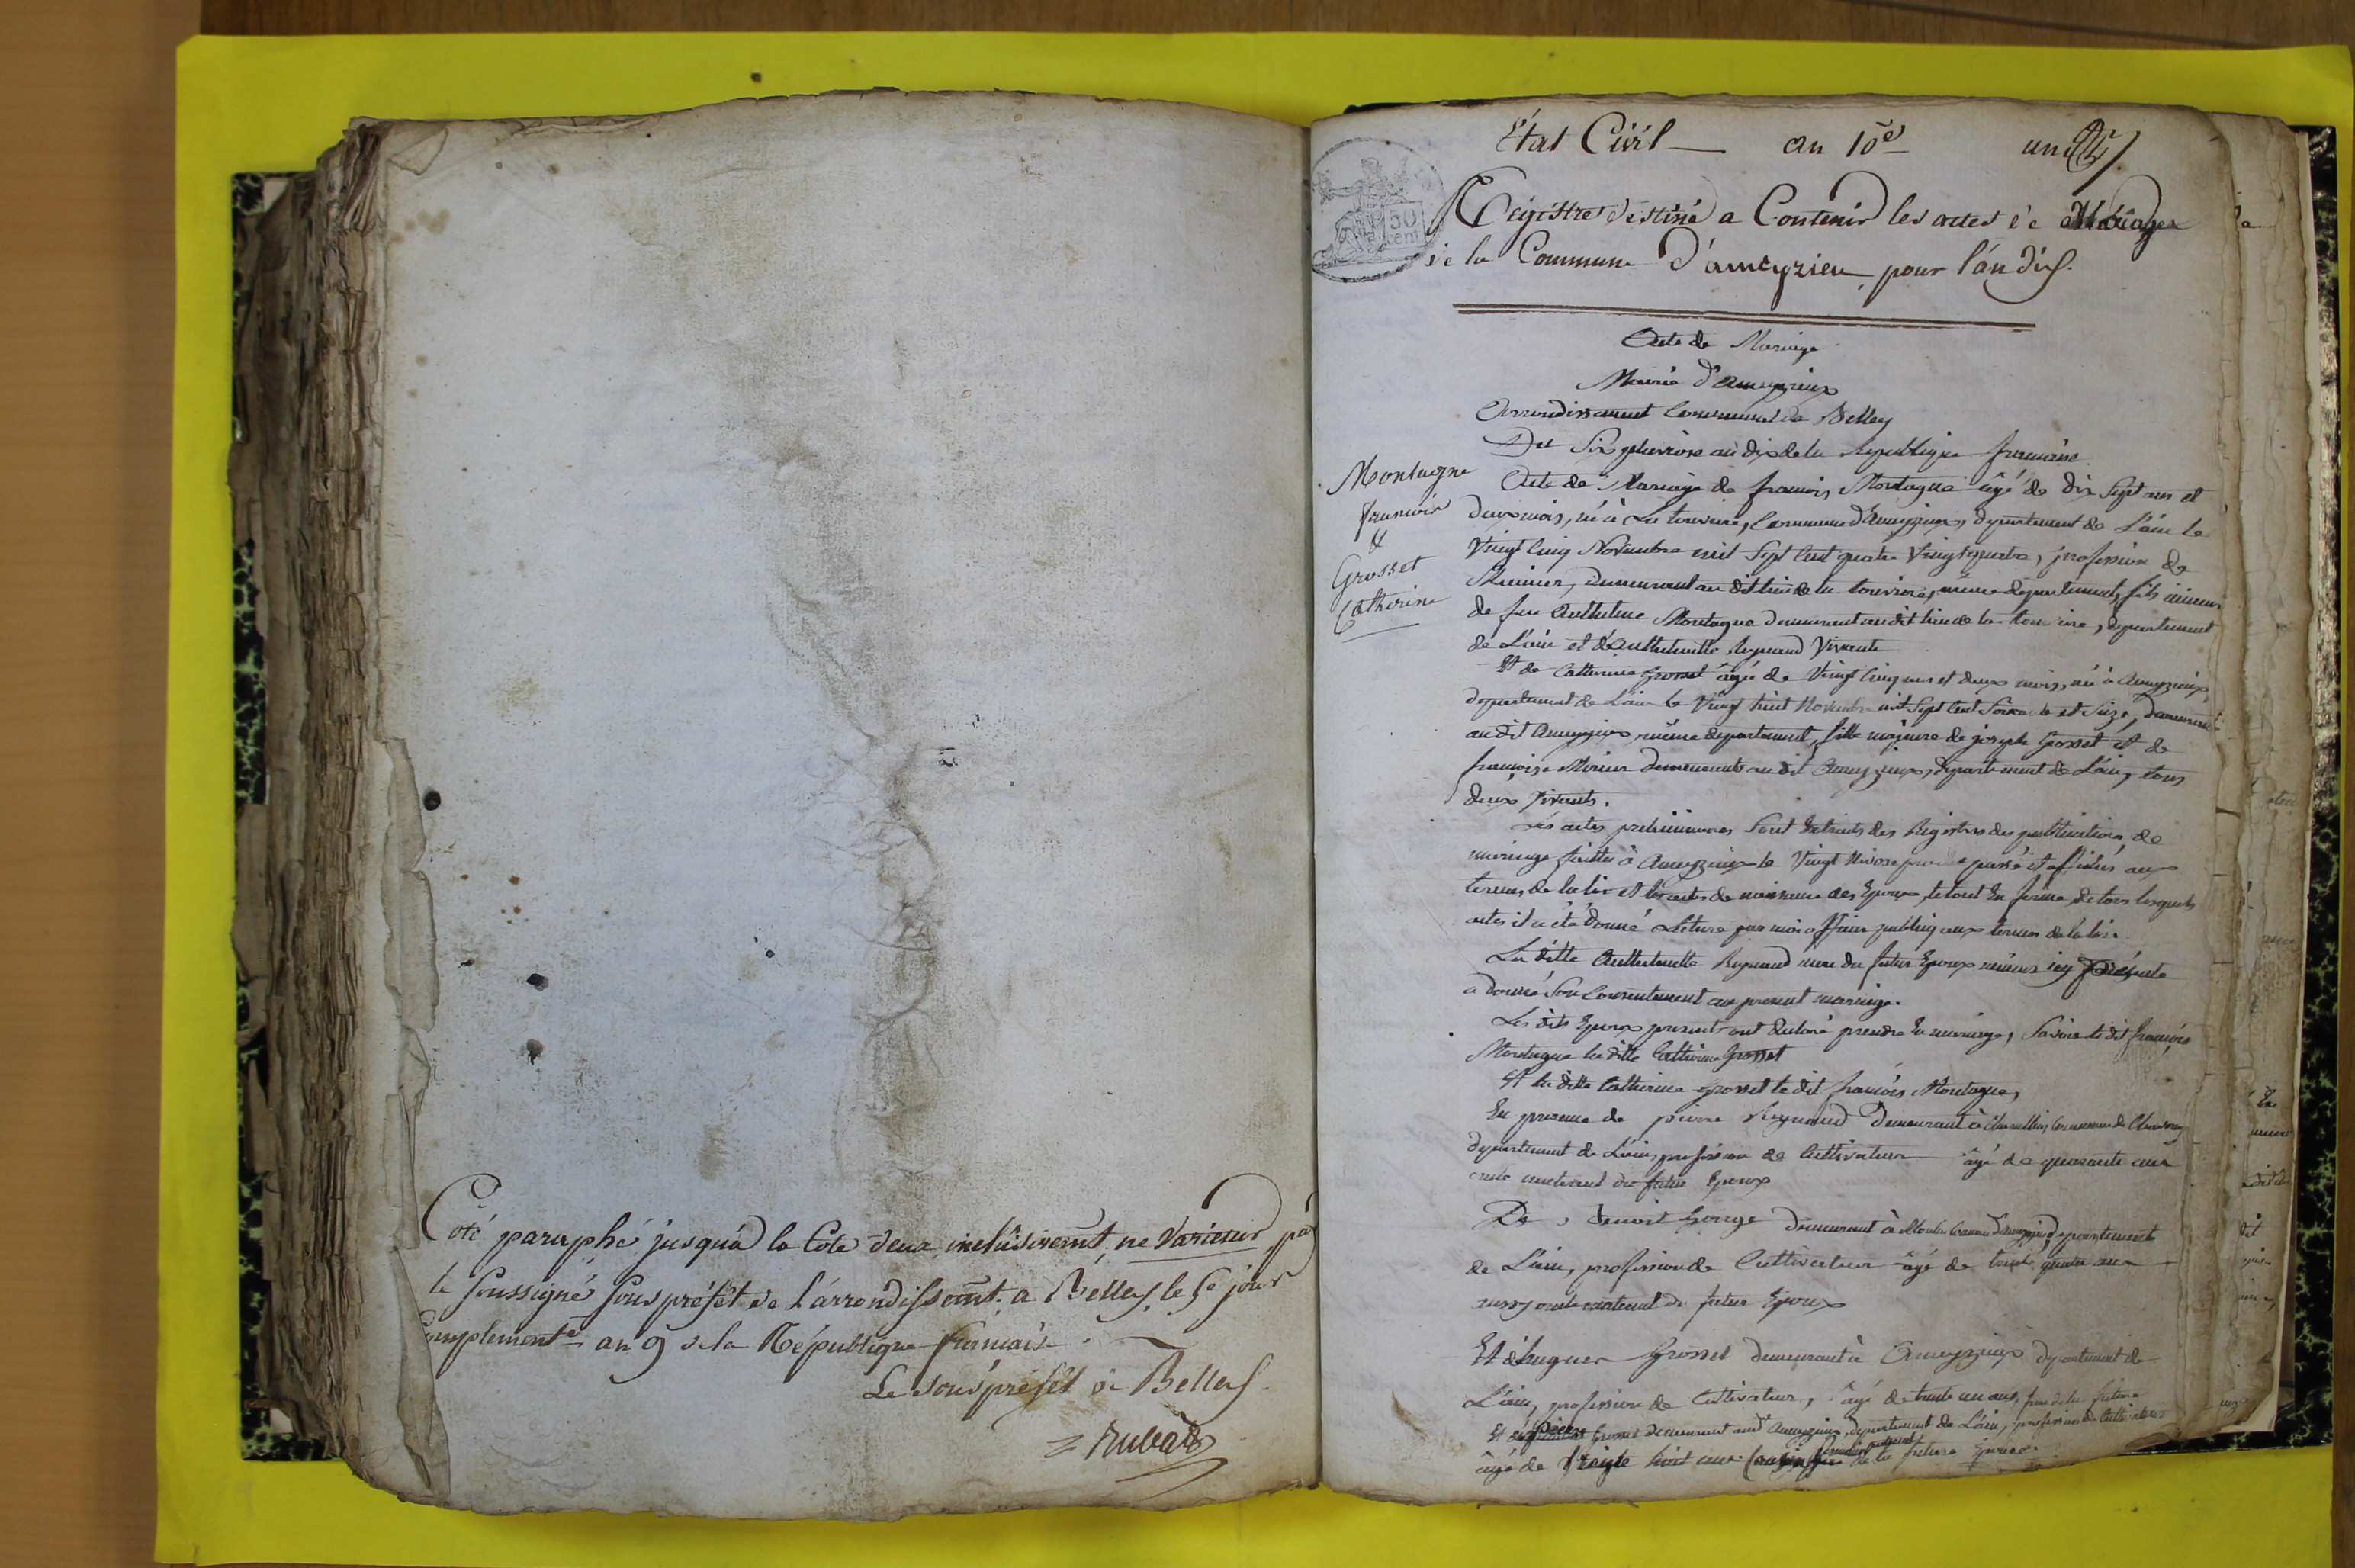 Coté paraphé jusqu'a la Cote deux inclusivemt. ne Varietur par
le soussigné sous préfêt de l'arrondissemt. a Belley, le 5e jour
Complementre an 9 de la République francaise.
Le sous préfêt de Belley
Rubat
État Civil an 10e un
Régistre déstiné a Contenir les actes de Mariages
de la Commune d'ameyzieu pour l'an dix.
50 cent
Acte de Mariage
Mairie d'Ameyzieux
Arrondissement Communal de Belley
Du Six pluviose an dix de la Republique francaise
Montagne
francois
&
Grosset
Catherine
Acte de Mariage de francois Montagne âgé de dix Sept ans et
deux mois, né à La touvière, Commune d'Ameyzieux, departement de L'ain le
Vingt Cinq Novembre mil Sept Cent quatre Vingt quatre, profession de
demeurant au dit lieu de la touvière, même departement, fils mineur
de feu Anthelme Montagne demeurant au dit lieu de la touvière, departement
de L'ain et d'Anthelmette Reynaud Vivante
Et de Catherine Grosset âgée de Vingt Cinq ans et deux mois, née à Ameyzieux,
departement de L'ain le Vingt huit Novembre mil Sept Cent Soixante et Seize, demeurant
au dit Ameyzieux, même departement, fille majeure de joseph Grosset et de
françoise demeurants au dit Ameyzieux, departement de L'ain, tous
deux Vivants.
Les actes preliminaires Sont Extraits des Registres des publications de
mariage faittes à Ameyzieux le Vingt Nivose passé et affichés aux
termes de la loi et les actes de naissance des Epoux, le tout En forme, de tous lesquels
actes il a été donné Lecture par moi officier public, aux termes de la loi.
La ditte Anthelmette Reynaud mere du futur Epoux mineur icy présente
a donné Son Consentement au present mariage.
Les dits Epoux presents ont declaré prendre En mariage, Savoir le dit françois
Montagne la ditte Catherine Grosset
Et la ditte Catherine Grosset le dit francois Montagne,
En presence de pierre Reynaud Demeurant à Commune de
departement de L'ain, profession de Cultivateur âgé de quarante ans
oncle maternel du futur Epoux
De Benoit Gonge demeurant à Commune d'Ameyzieu, departement
de L'ain, profession de Cultivateur âgé de trente quatre ans
aussy oncle maternel du futur Epoux
Et d'hugues Grosset demeurant à Ameyzieux departement de
L'ain, profession de Cultivateur, âgé de trente un ans, frere de la future
Et de Pierre Grosset demeurant aud. Ameyzieu, departement de L'ain, profession de Cultivateur
âgé de Vingte huit ans de la future Epouse.